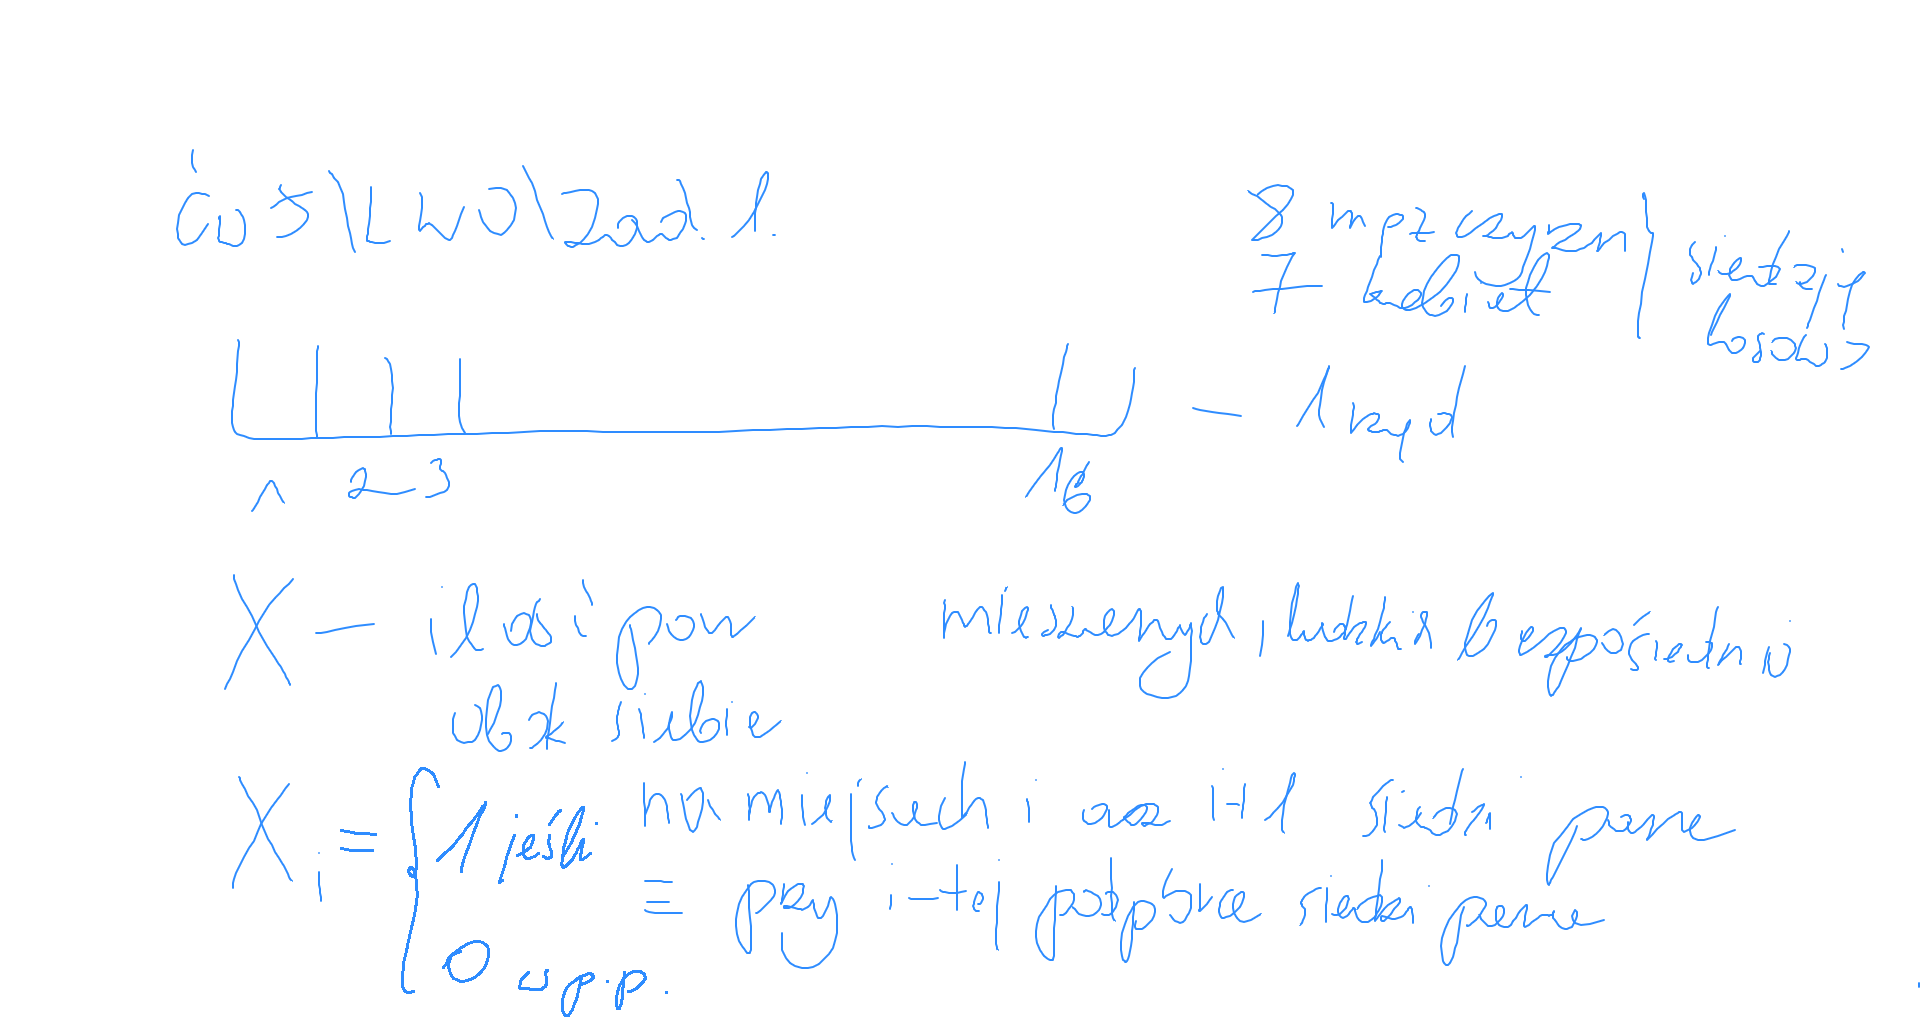 Ćw 5 \ LWO \ Zad. 1.
8 mężczyzn
7 kobiet
siedzą
losowo
1 2 3 16 — 1 rząd
X — ilość par mieszanych, ludzkich bezpośrednio
obok siebie
X i = { 1 jeśli na miejscach i oraz i+1 siedzi para
≡ przy i-tej podpórce siedzi para
0 w p.p.